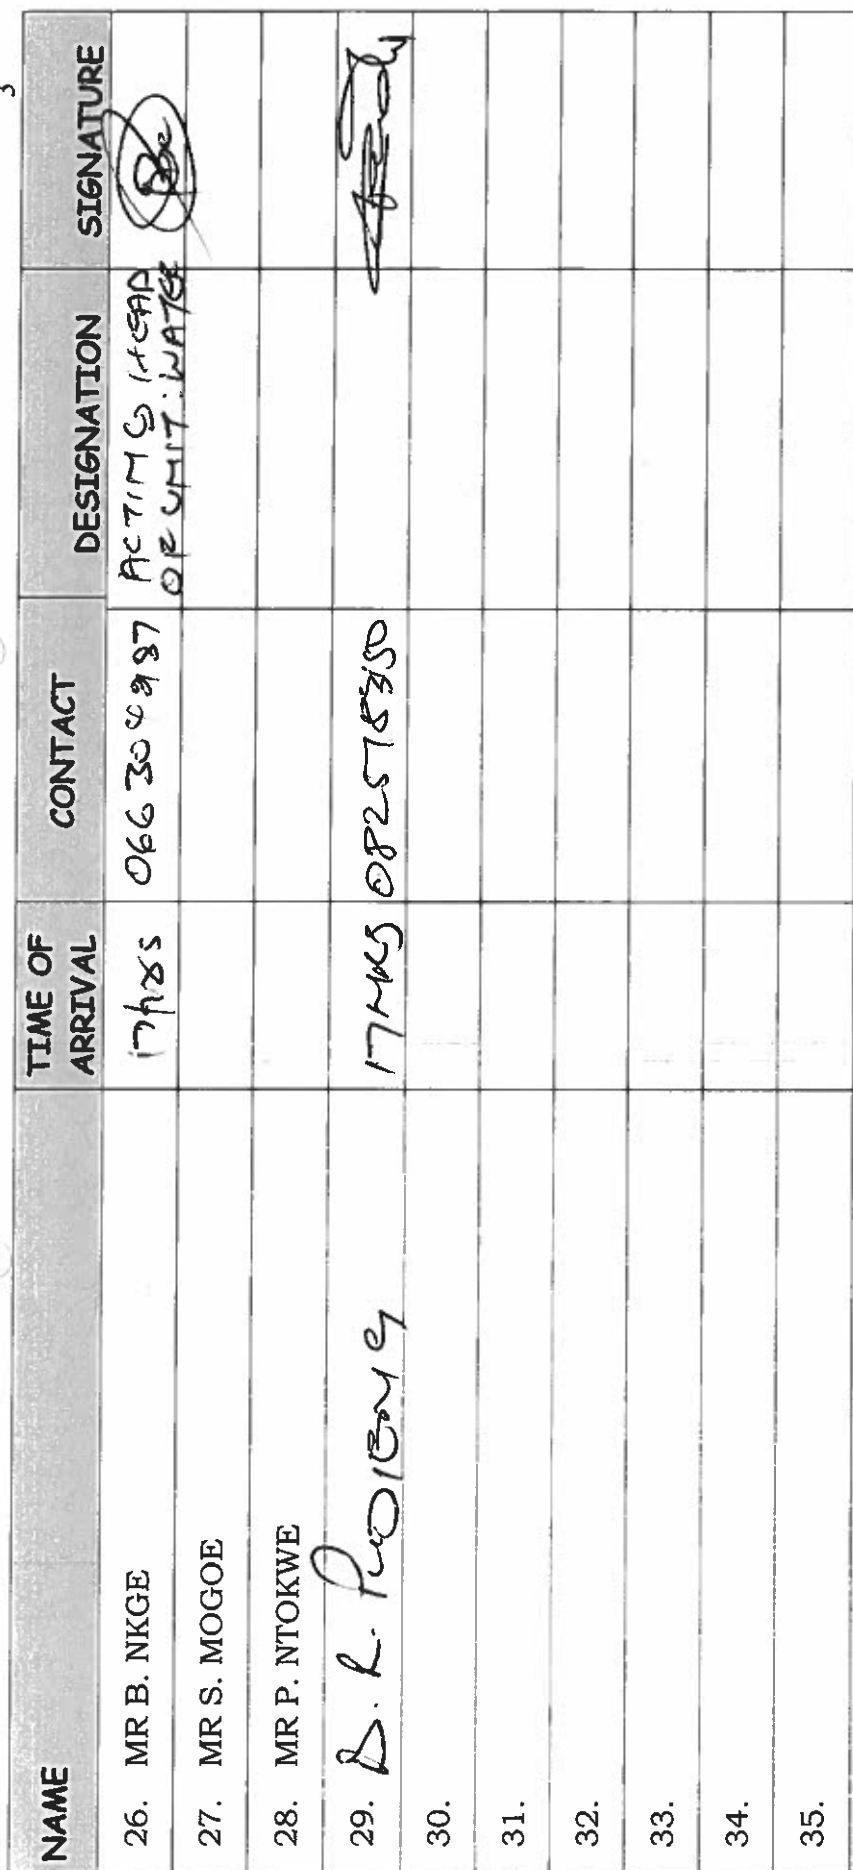 3
NAME TIME OF ARRIVAL CONTACT DESIGNATION SIGNATURE
26. MR B. NKGE 17hrs 066 304 9987 ACTING HEAD
OF UNIT: WATER
27. MR S. MOGOE
28. MR P. NTOKWE
29. D. R. 17HRS
30.
31.
32.
33.
34.
35.